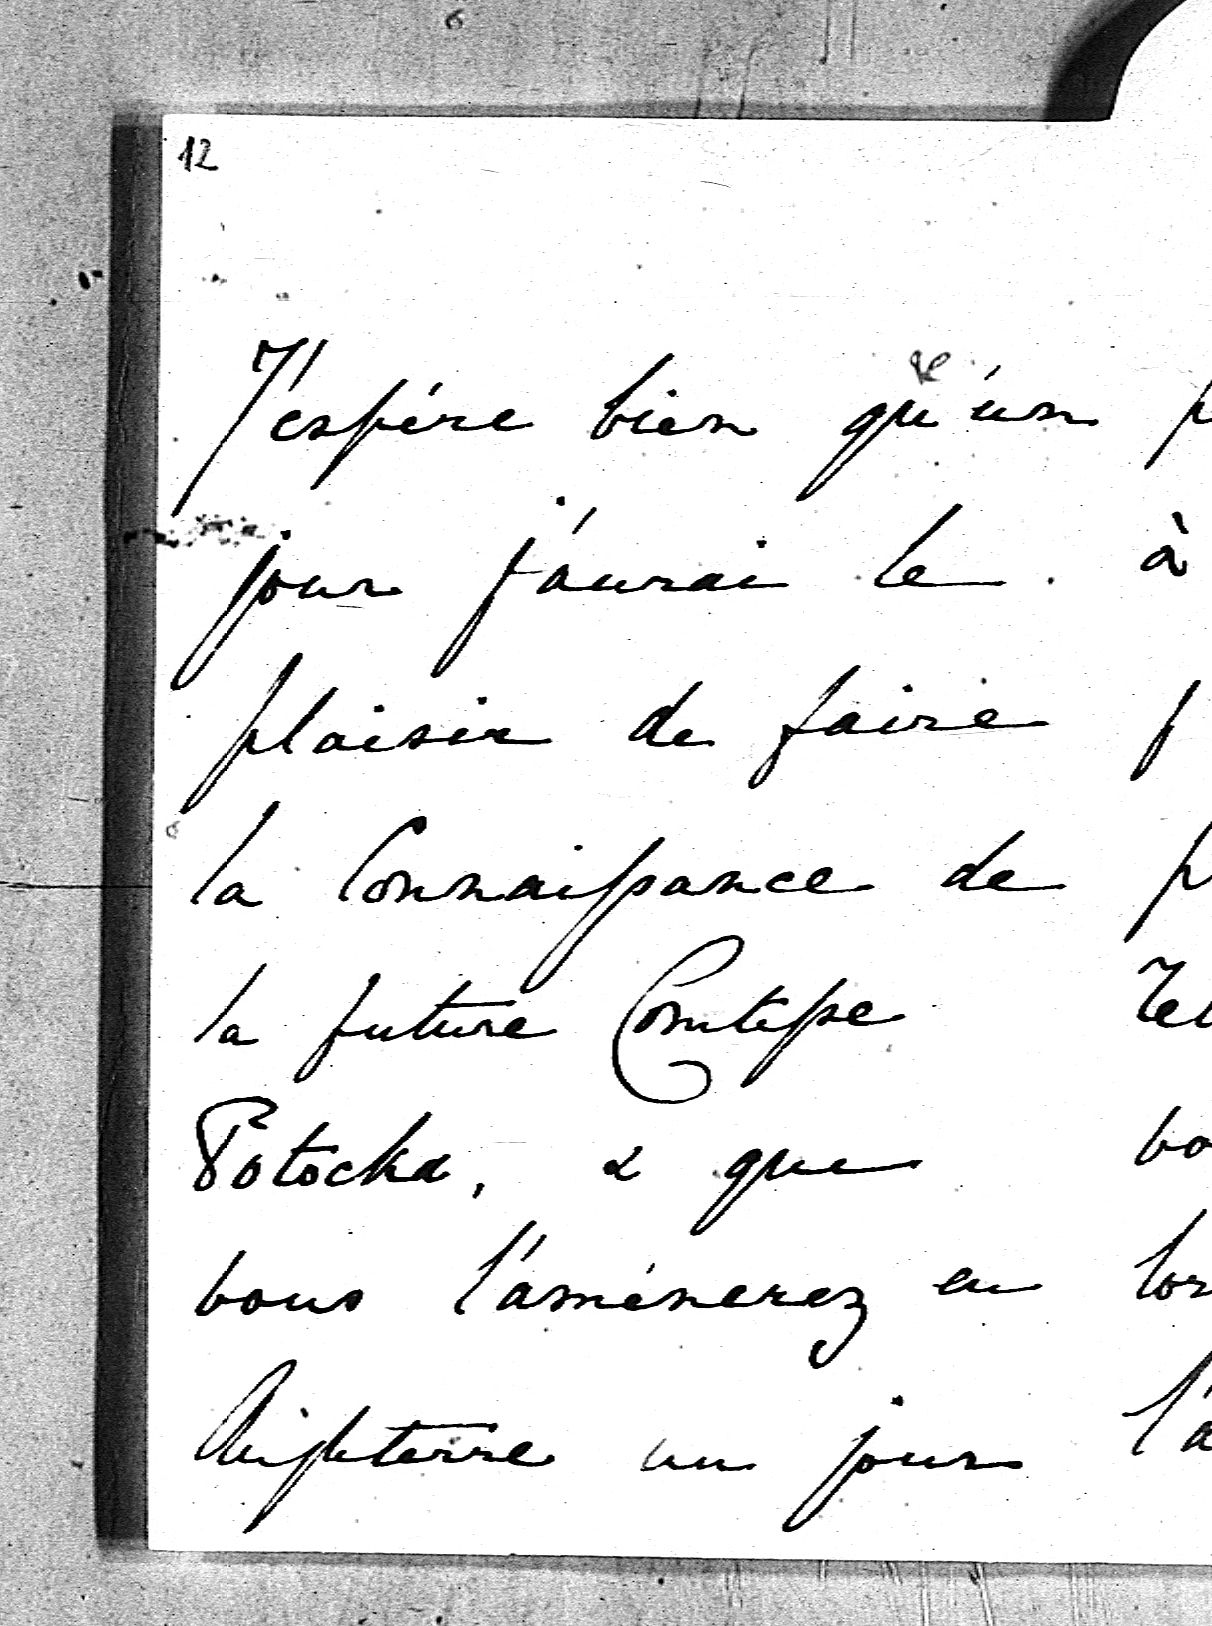 12
J'espére bien qu'un
jour j'aurai le
plaisir de faire
la Connaissance de
la future Comtesse
Potocka, & que
vous l'aménerez en
Angleterre un jour
à